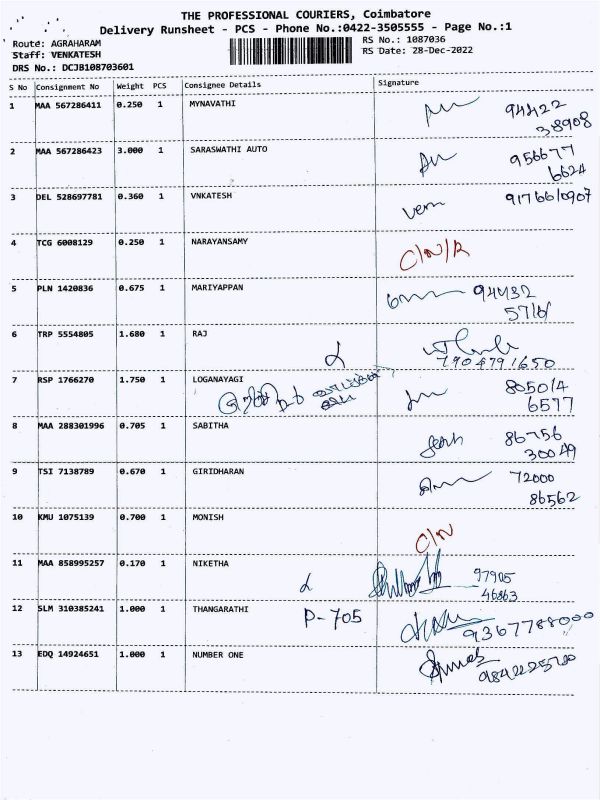 THE PROFESSIONAL COURIERS, Coimbatore
Delivery Runsheet - PCS - Phone No.:0422-3505555 - Page No.:1
Route: AGRAHARAM RS No.: 1087036
Staff: VENKATESH RS Date: 28-Dec-2022
DRS No.: DCJB108703601
S No Consignment No Weight PCS Consignee Details Signature
1 MAA 567286411 0.250 1 MYNAVATHI 94422
38908
2 MAA 567286423 3.000 1 SARASWATHI AUTO 956677
6624
3 DEL 528697781 0.360 1 VNKATESH 9176610907
4 TCG 6008129 0.250 1 NARAYANSAMY C/N/R
5 PLN 1420836 0.675 1 MARIYAPPAN 94432
57161
6 TRP 5554805 1.680 1 RAJ
7904791650
7 RSP 1766270 1.750 1 LOGANAYAGI 805014
6577
8 MAA 288301996 0.705 1 SABITHA 86756
30049
9 TSI 7138789 0.670 1 GIRIDHARAN 72000
86562
10 KMU 1075139 0.700 1 MONISH C/N
11 MAA 858995257 0.170 1 NIKETHA 97905
46863
12 SLM 310385241 1.000 1 THANGARATHI P-705 9367788000
13 EDQ 14924651 1.000 1 NUMBER ONE